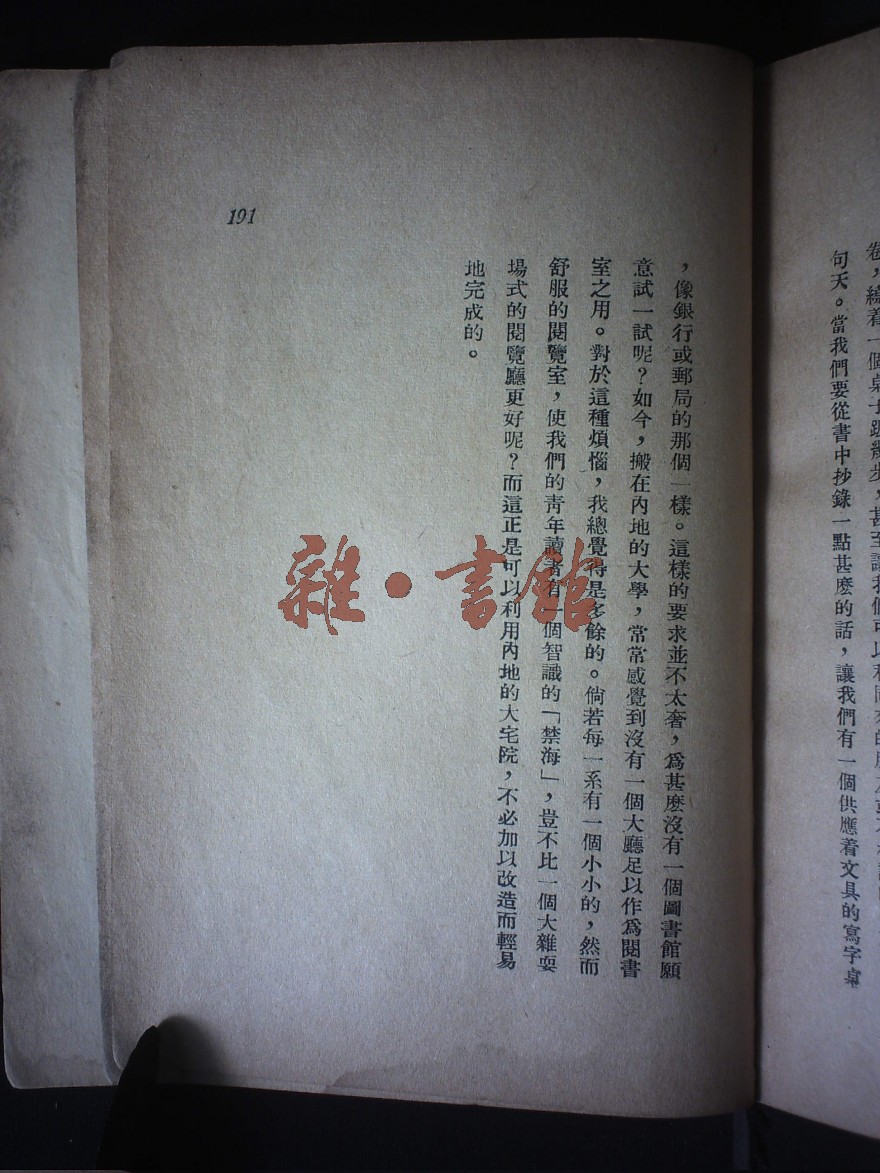 句天。當我們要從書中抄錄一點甚麽的話，讓我們有一個供應着文具的寫字桌
，像銀行或郵局的那個一樣。這樣的要求並不太奢，爲甚麽沒有一個圖書館願
意試一試呢？如今，搬在內地的大學，常常感覺到沒有一個大廳足以作爲閱書
室之用。對於這種煩惱，我總覺得是多餘的。倘若每一系有一個小小的，然而
舒服的閱覽室，使我們的靑年讀者有一個智識的「禁海」，豈不比一個大雜耍
場式的閱覽廳更好呢？而這正是可以利用內地的大宅院，不必加以改造而輕易
地完成的。
191
雜·書館